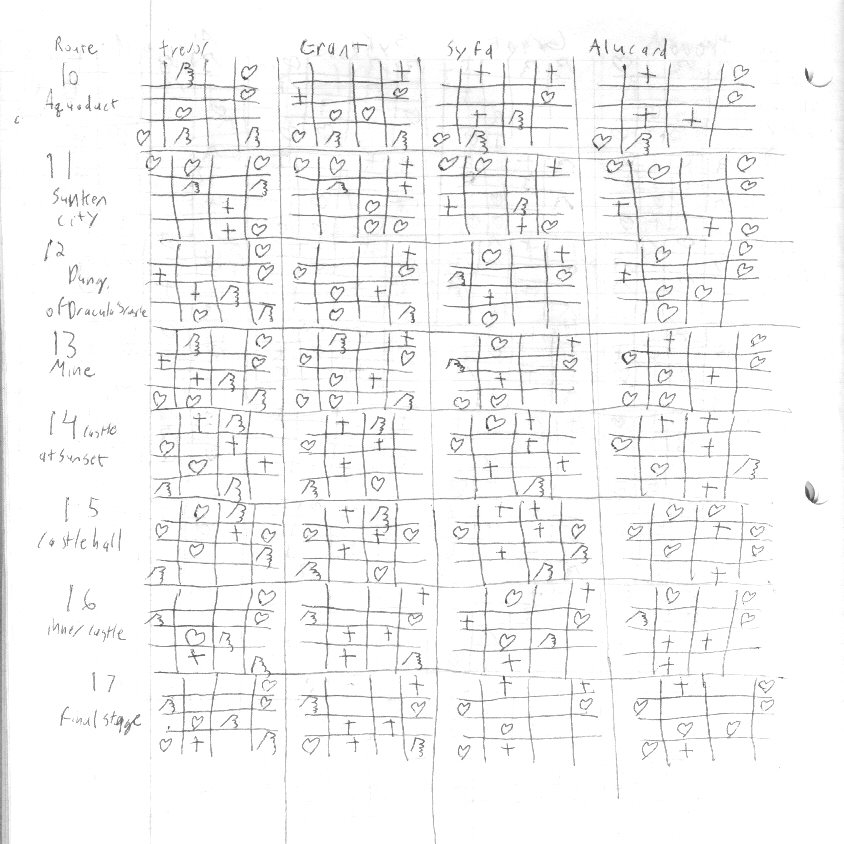 Route trevor Grant Syfa Alucard
10
Aquaduct
11
Sunken
city
12
Dung.
of Draculas
13
Mine
14 castle
at sunset
15
Castle hall
16
inner castle
17
Final stage